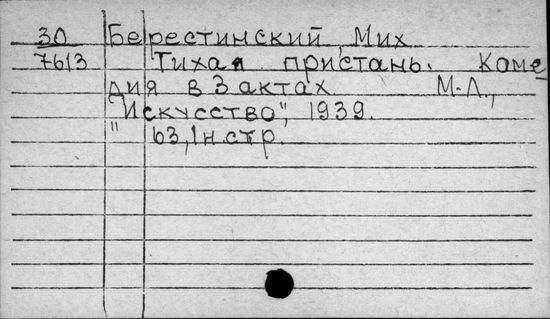 30 Берестинский, Мих
7613 Тихая пристань. Коме
дия в 3 актах. М-Л.,
"Искусство", 1939.
" 63, 1 н. стр.